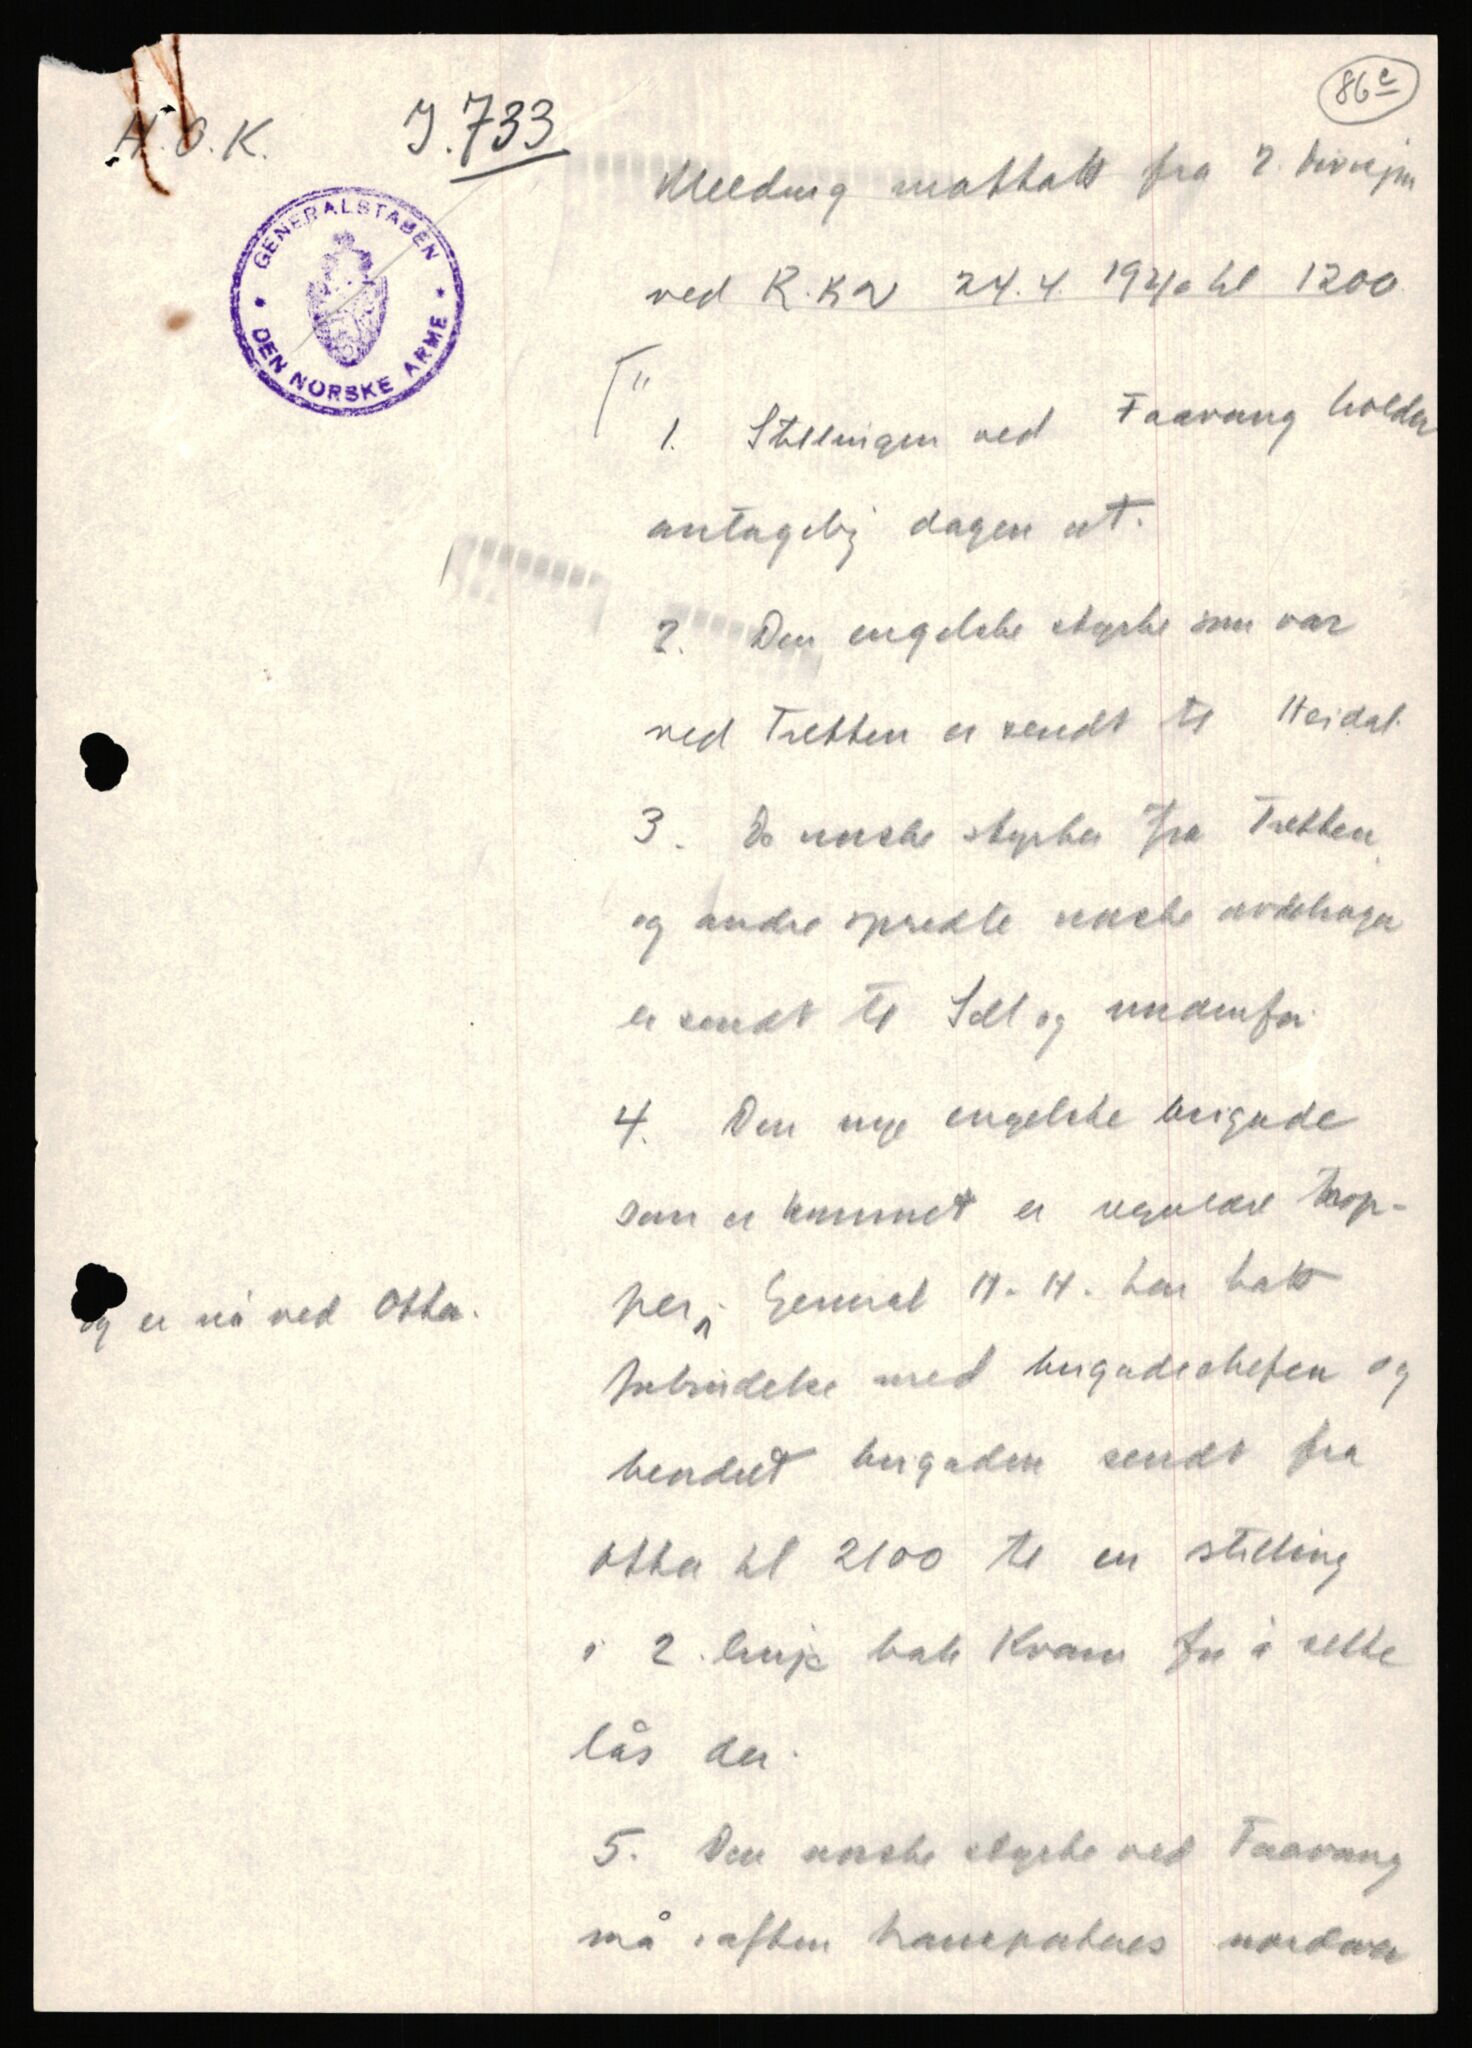 86e
H.O.K. J.733
GENERALSTABEN
DEN NORSKE ARME
Melding mottatt fra 2. divisjon
ved R.K2 24.4 1940 kl 1200
"
1. Stillingen ved Faavang holder
antagelig dagen ut.
2. Den engelske styrke som var
ved Tretten er sendt til Heidal.
3. De norske styrker fra Tretten
og andre spredte norske avdelinger
er sendt til Sell og nedenfor.
4. Den nye engelske brigade
som er kommet er regulære trop-
per, General H.H. har hatt
og er nå ved Otta.
forbindelse med brigadechefen og
brigaden sendt fra
Otta kl 2100 til en stilling
i 2. linje bak Kvam for å sette
lås der.
5. Den norske styrke ved Faavang
må i aften transporteres nordover